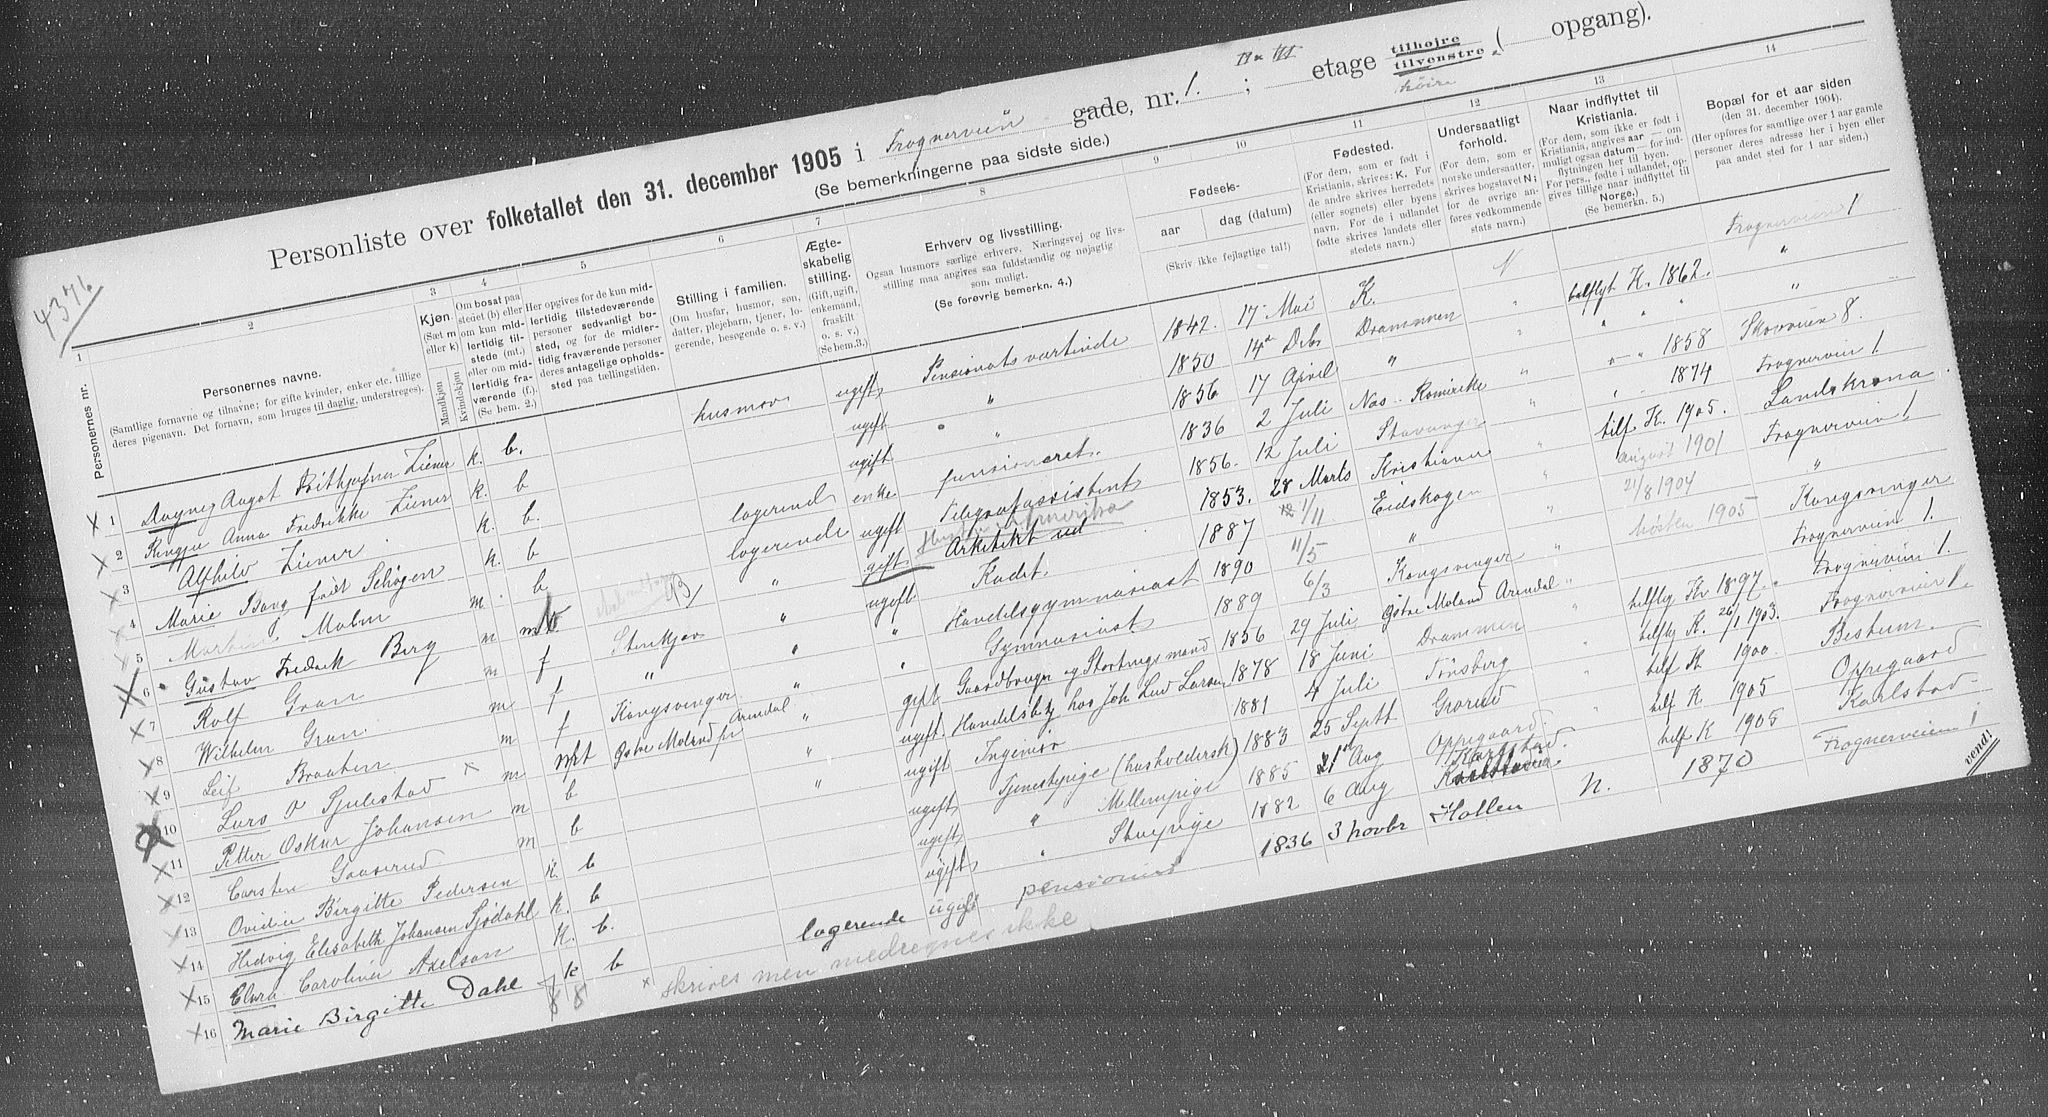 4376
Personliste over folketallet den 31. december 1905 i Frognerveien gade, nr. 1. ; II & III etage tilhøjre tilvenstre ( opgang).
høire
(Se bemerkningerne paa sidste side.)
1 2 3 4 5 6 7 8 9 10 11 12 13 14
Personernes nr.
Personernes navne.
(Samtlige fornavne og tilnavne; for gifte kvinder, enker etc. tillige deres pigenavn. Det fornavn, som bruges til daglig, understreges).
Kjøn. (Sæt m eller k) Mandkjøn Kvindekjøn
Om bosat paa stedet (b) eller om kun midlertidig tilstede (mt.) eller om midlertidig fraværende (f.) (Se bem. 2.)
Her opgives for de kun midlertidig tilstedeværende personer sedvanligt bosted, og for de midlertidig fraværende personer deres antagelige opholdssted paa tællingstiden.
Stilling i familien.
(Om husfar, husmor, søn, datter, plejebarn, tjener, logerende, besøgende o. s. v.)
Ægteskabelig stilling. (Gift, ugift, enkemand, fraskilt o. s. v.) (Se bem. 3.)
Erhverv og livsstilling.
Ogsaa husmors særlige erhverv. Næringsvej og livsstilling maa angives saa fuldstændig og nøjagtig som muligt.
(Se forøvrig bemerkn. 4.)
Fødsels-
aar dag (datum)
(Skriv ikke fejlagtige tal!)
Fødested.
(For dem, som er født i Kristiania, skrives: K. For de andre skrives herredets (eller sognets) eller byens navn. For de i udlandet fødte skrives landets eller stedets navn.)
Undersaatligt forhold.
(For dem, som er norske undersaatter, skrives bogstavet N; for de øvrige anføres vedkommende stats navn.)
Naar indflyttet til Kristiania.
(For dem, som ikke er født i Kristiania, angives aar — om muligt ogsaa datum — for indflytningen her til byen. For pers., fødte i udlandet, opgives tillige naar indflyttet til Norge.)
(Se bemerkn. 5.)
Bopæl for et aar siden
(31. december 1904).
(Her opføres for samtlige over 1 aar gamle personer deres adresse her i byen eller paa andet sted for 1 aar siden.)
1 Dagny Aagot Ziener k. b. husmor ugift Pensionatsvertinde 1842. 17 Mai K. N Frognerveien 1
2 Anna Fredrikke Ziener k. b ugift " 1850 14de Dcbr Drammen " tilflyt K. 1862. "
3 Alfhild Ziener k. b. ugift " 1856 17 April " " " " "
4 Marie Bang født k. b logerend enke pensioneret. 1836 2 Juli Nas Romerike " 1858 Skovveien 8.
5 Malm k. b logerende ugift Telegrafassistent 1856. 12 Juli Stavanger " 1874 Frognerveien 1.
6 Gustav Fredrik Berg m b " gift Arkitekt 1853. 28 Marts Kristiania " tilf K. 1905. Landskrona
7 Rolf Gran m f Stenkjær " ugift Kadet 1887 1/11 Eidskogen " august 1901 Frognerveien 1
8 Wilhelm Gran m f " " " Handelsgymnasiast 1890 11/5 " " 21/8 1904 "
9 Leif Braaten m f Kongsvinger " " Gymnasiast 1889 6/3 Kongsvinger " høsten 1905 Kongsvinger
10 Lars O Sjulestad × m mt Østre Moland pr Arendal " gift Gaardbruger og Stortingsmand 1856 29 Juli Østre Moland Arendal " Frognerveien 1.
11 Petter Oskar Johansen m b " ugift Handelsbtj hos Joh Lud Larsen 1878 18 Juni Drammen " tilflyt Kr 1897. Frognerveien 1.
12 Carsten m b ugift Ingeniør 1881 4 Juli Tønsberg tilfly K. 26/1 1903. Frognerveien 1.
13 Birgitte Pedersen k. b ugift Tjenestepige (husholdersk) 1883 25 Septt Grorud " tilf K 1900. Bestum.
14 Hedvig Elisabeth Johansen Sjødahl k. b ugift " Mellempige 1885 21de Aug Oppegaard. tilf K. 1905 Oppegaard
15 Clara Caroline Axelson k. b. ugift " Stuepige 1882 6 Aug Karlstad tilf K 1905 Karlstad
16 Marie Birgitte Dahl k b logerende ugift pensionist 1836 3 novbr Hollen N. 1870 Frognerveien 1
8 8 × skrives men medregnes ikke
vend!